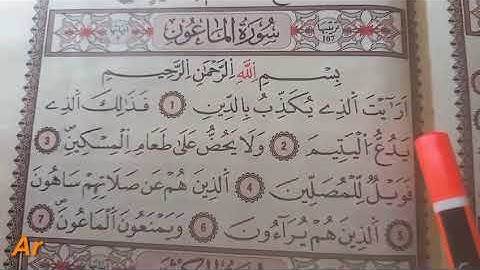 سُورَةُ الْمَاعُونَ
107
بِسْمِ اللَّهِ الرَّحْمَٰنِ الرَّحِيمِ
أَرَأَيْتَ الَّذِي يُكَذِّبُ بِالدِّينِ ① فَذَٰلِكَ الَّذِي
يَدُعُّ الْيَتِيمَ ② وَلَا يَحُضُّ عَلَىٰ طَعَامِ الْمِسْكِينِ ③
فَوَيْلٌ لِّلْمُصَلِّينَ ④ الَّذِينَ هُمْ عَن صَلَاتِهِمْ سَاهُونَ
⑤ الَّذِينَ هُمْ يُرَاءُونَ ⑥ وَيَمْنَعُونَ الْمَاعُونَ ⑦
Ar